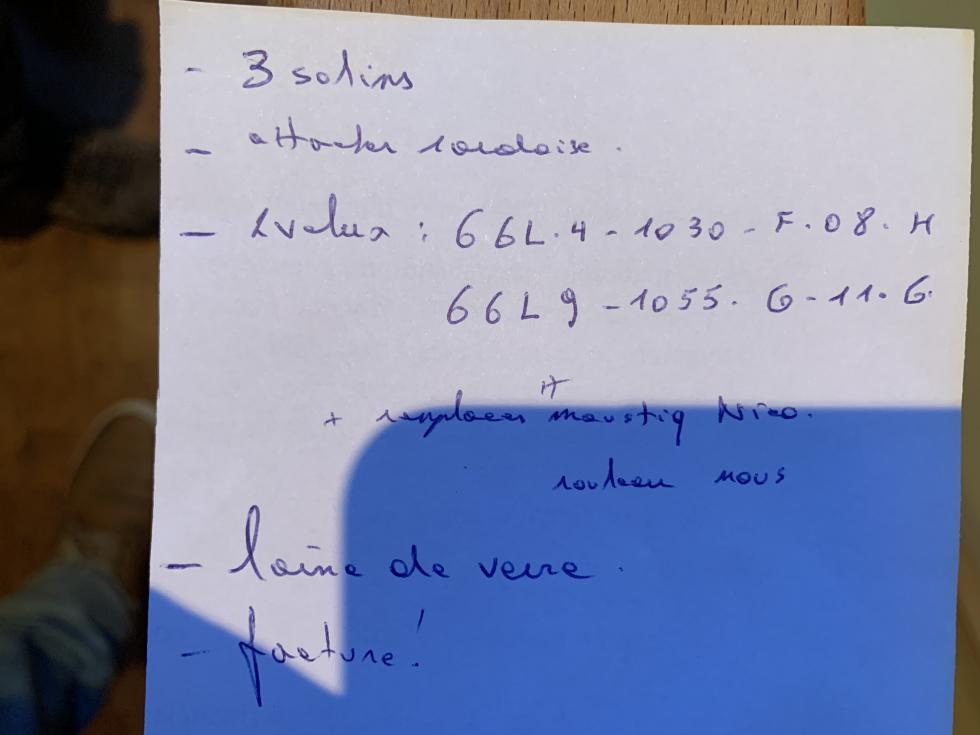 - 3 solins
- attacher
- 2 velux : 66L.4-1030-F.08.H
66L9-1055.G-11.G.
+ remplacer moustiq Nico.
rouleau nous
- laine de verre.
- facture!